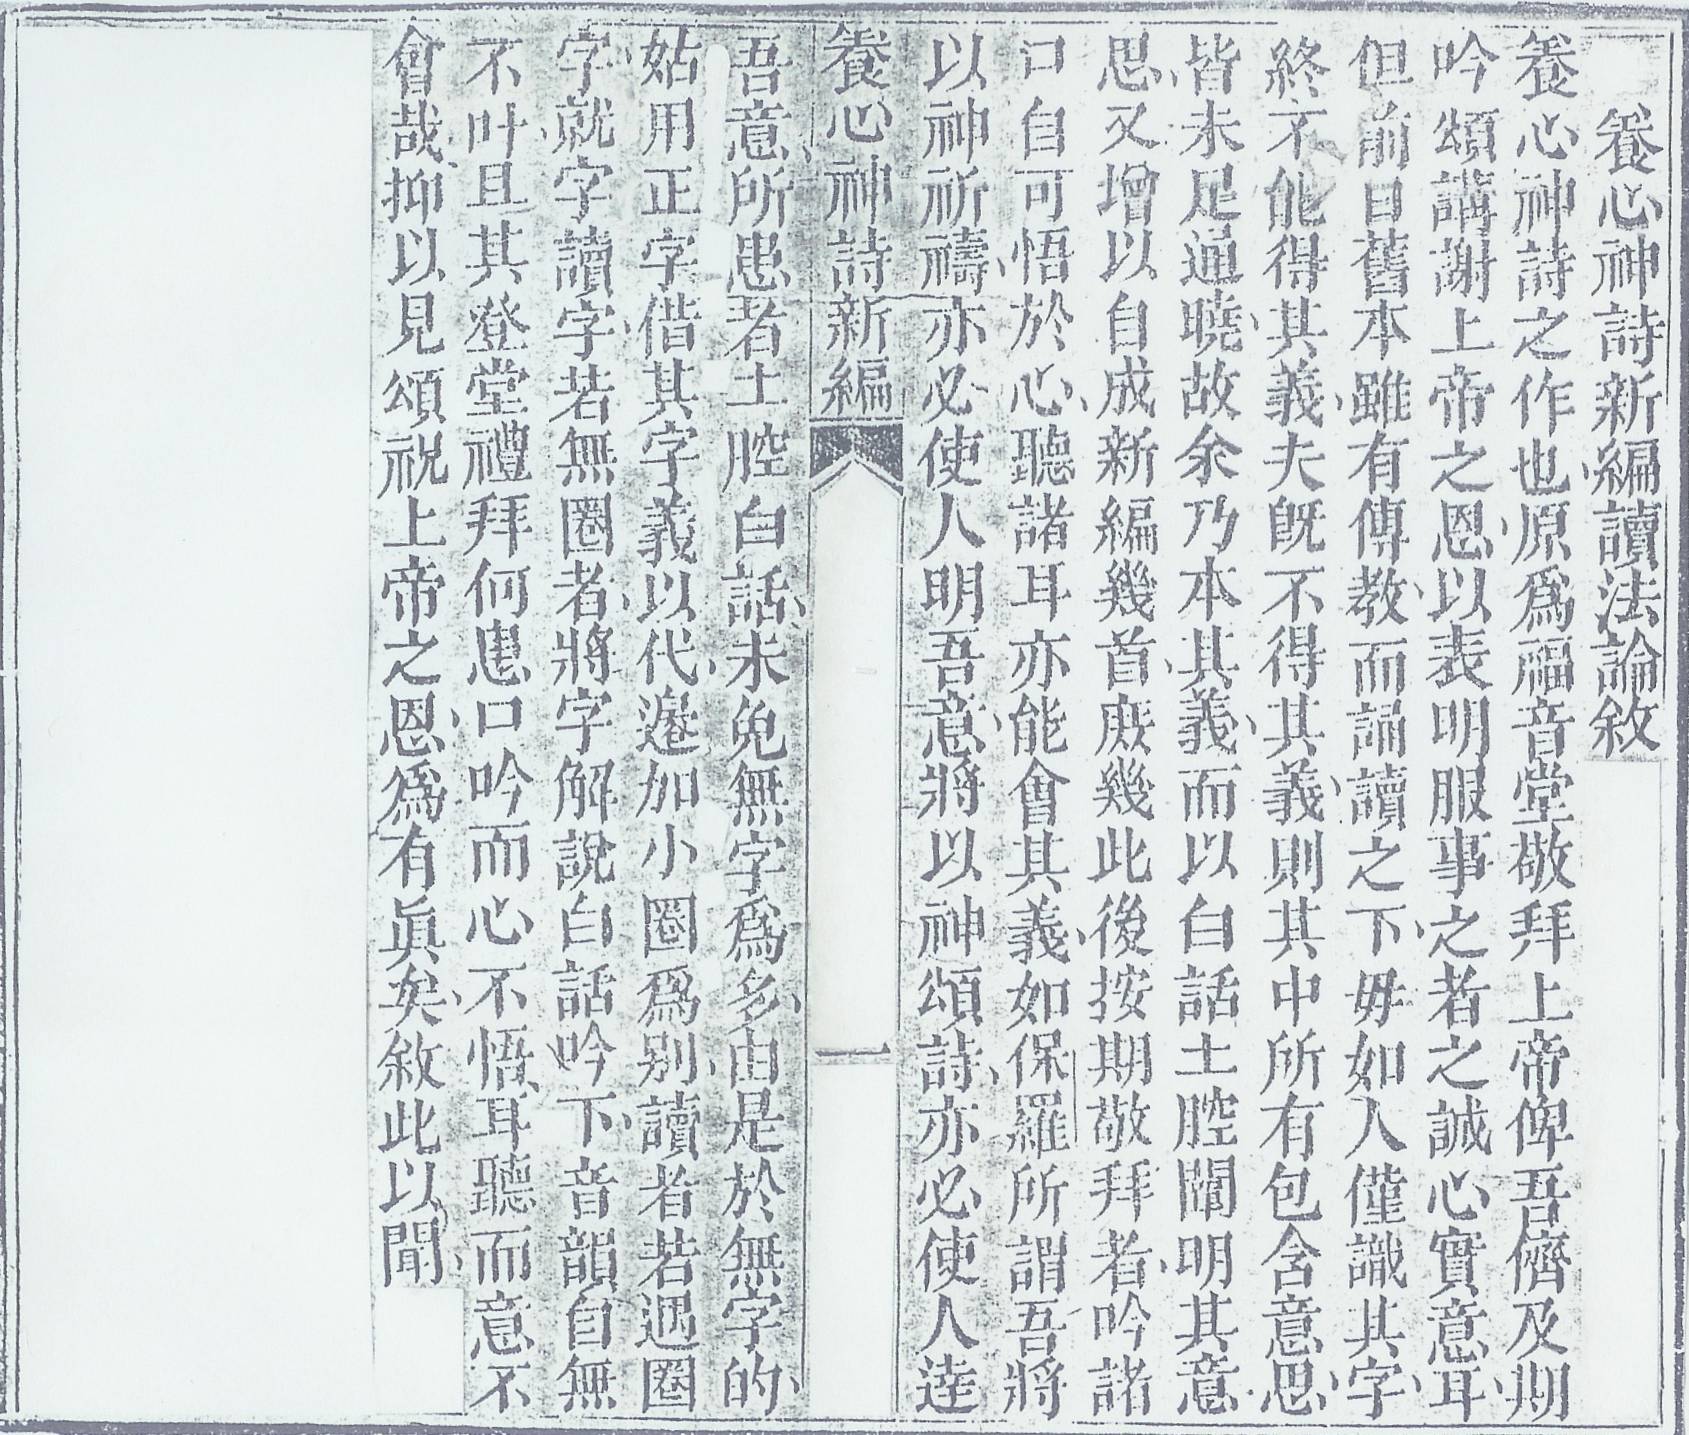 養心神詩新編讀法論敘
養心神詩之作也原爲福音堂敬拜上帝俾吾儕及期
吟頌講謝上帝之恩、以表明服事之者之誠心實意耳、
但前日舊本雖有傳教、而誦讀之下、毋如人僅識其字、
終不能得其義、夫旣不得其義、則其中所有包含意思、
皆未足通曉、故余乃本其義、而以白話土腔闡明其意
思、又增以自成新編幾首、庶幾此後按期敬拜者、吟諸
口自可悟於心、聽諸耳亦能會其義、如保羅所謂吾將
以神祈禱、亦必使人明吾意、將以神頌詩、亦必使人達
養心神詩新編
一
吾意、所患者土腔白話、未免無字爲多、由是於無字的、
姑用正字借其字義以代、邊加小圈爲別、讀者若遇圈
字就字讀字、若無圈者、將字解說白話吟下、音韻自無
不叶、且其登堂禮拜何患口吟而心不悟、耳聽而意不
會哉、抑以見頌祝上帝之恩、爲有眞矣、敘此以聞、